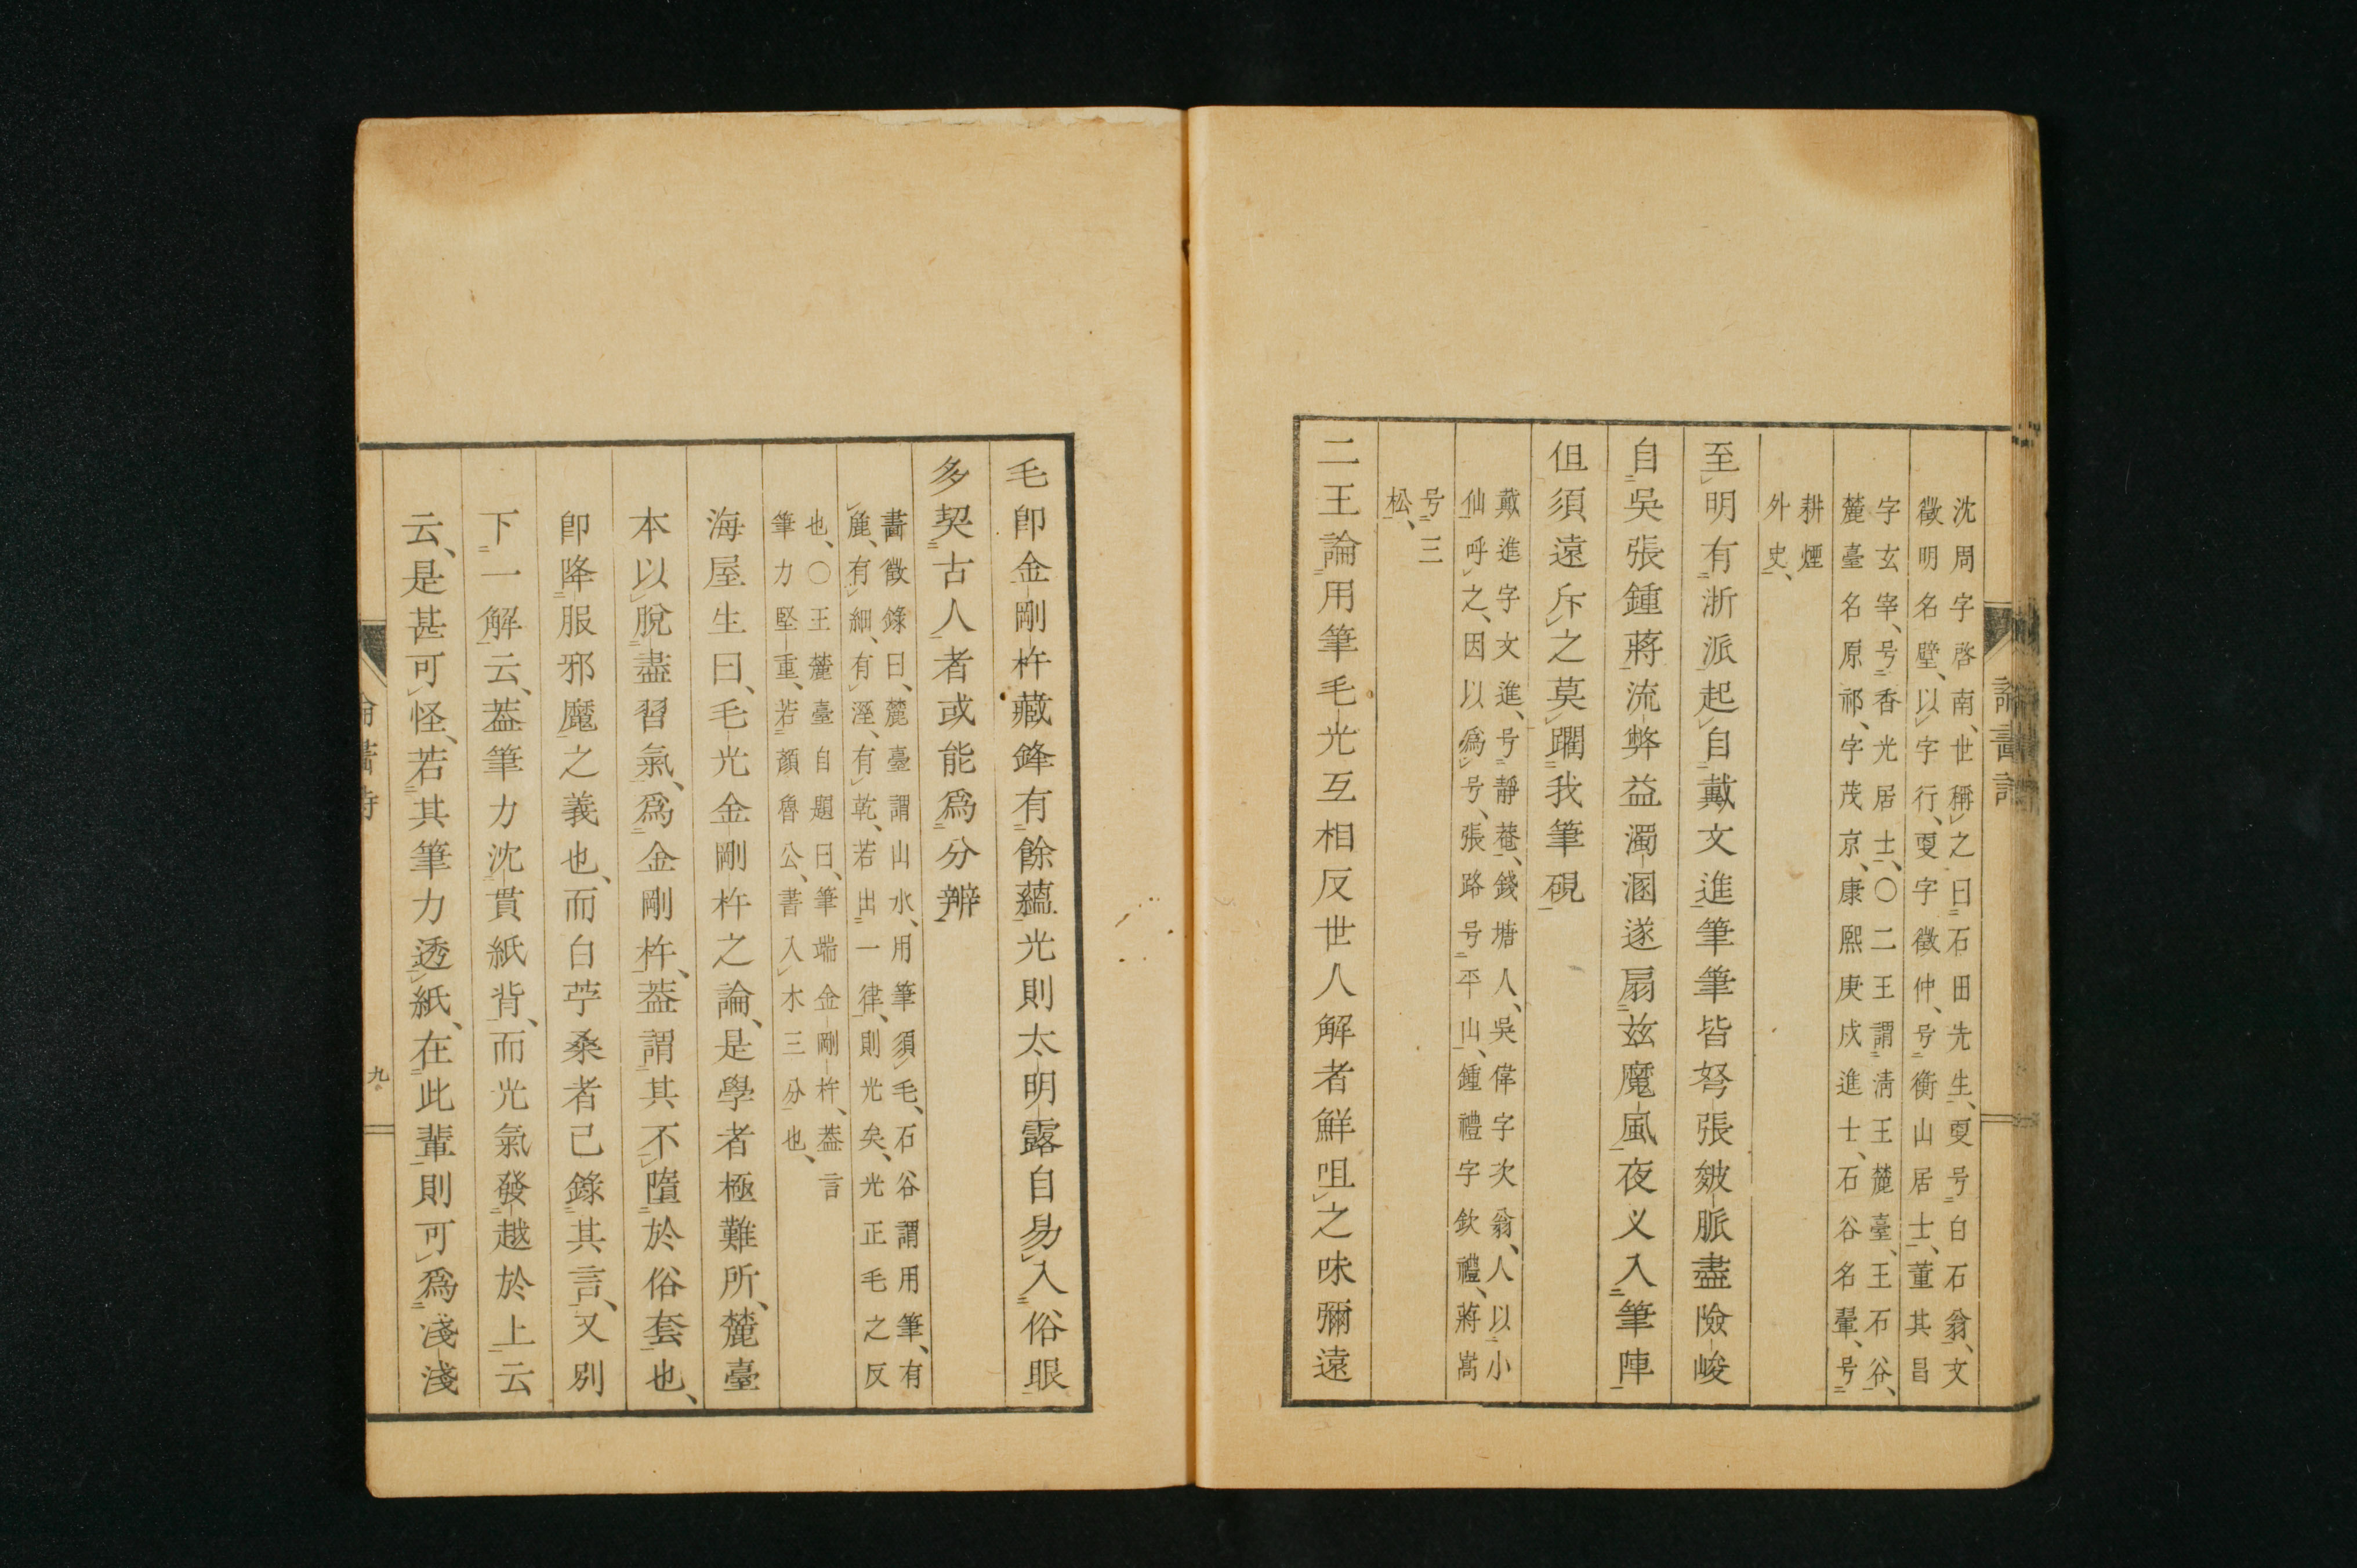 沈周字啓南、世稱之曰石田先生、更号白石翁、文
徵明名壁、以字行、更字徵仲、号衡山居士、董其昌
字玄宰、号香光居士、〇二王謂淸王麓臺、王石谷、
麓臺名原祁、字茂京、康熙庚戌進士、石谷名翬、号
耕煙
外史、
至明有浙派起自戴文進筆筆皆弩張皴脈盡險峻
自吳張鍾蔣流弊益濁溷遂扇茲魔風夜义入筆陣
但須遠斥之莫躙我筆硯
戴進字文進、号靜菴、錢塘人、吳偉字次翁、人以小
仙呼之、因以爲号、張路号平山、鍾禮字欽禮、蔣嵩
号三
松、
二王論用筆毛光互相反世人解者鮮咀之味彌遠
論畫詩
毛卽金剛杵藏鋒有餘蘊光則太明露自易入俗眼
多契古人者或能爲分辨
畵徵錄曰、麓臺謂山水、用筆須毛、石谷謂用筆、有
麁、有細、有溼、有乾、若出一律、則光矣、光正毛之反
也、〇王麓臺自題曰、筆端金剛杵、葢言
筆力堅重、若顏魯公、書入木三分也、
海屋生曰、毛光金剛杵之論、是學者極難所、麓臺
本以脫盡習氣、爲金剛杵、葢謂其不墮於俗套也、
卽降服邪魔之義也、而白苧桑者已錄其言、又別
下一解云、葢筆力沈貫紙背、而光氣發越於上云
云、是甚可怪、若其筆力透紙、在此輩則可爲淺淺
九